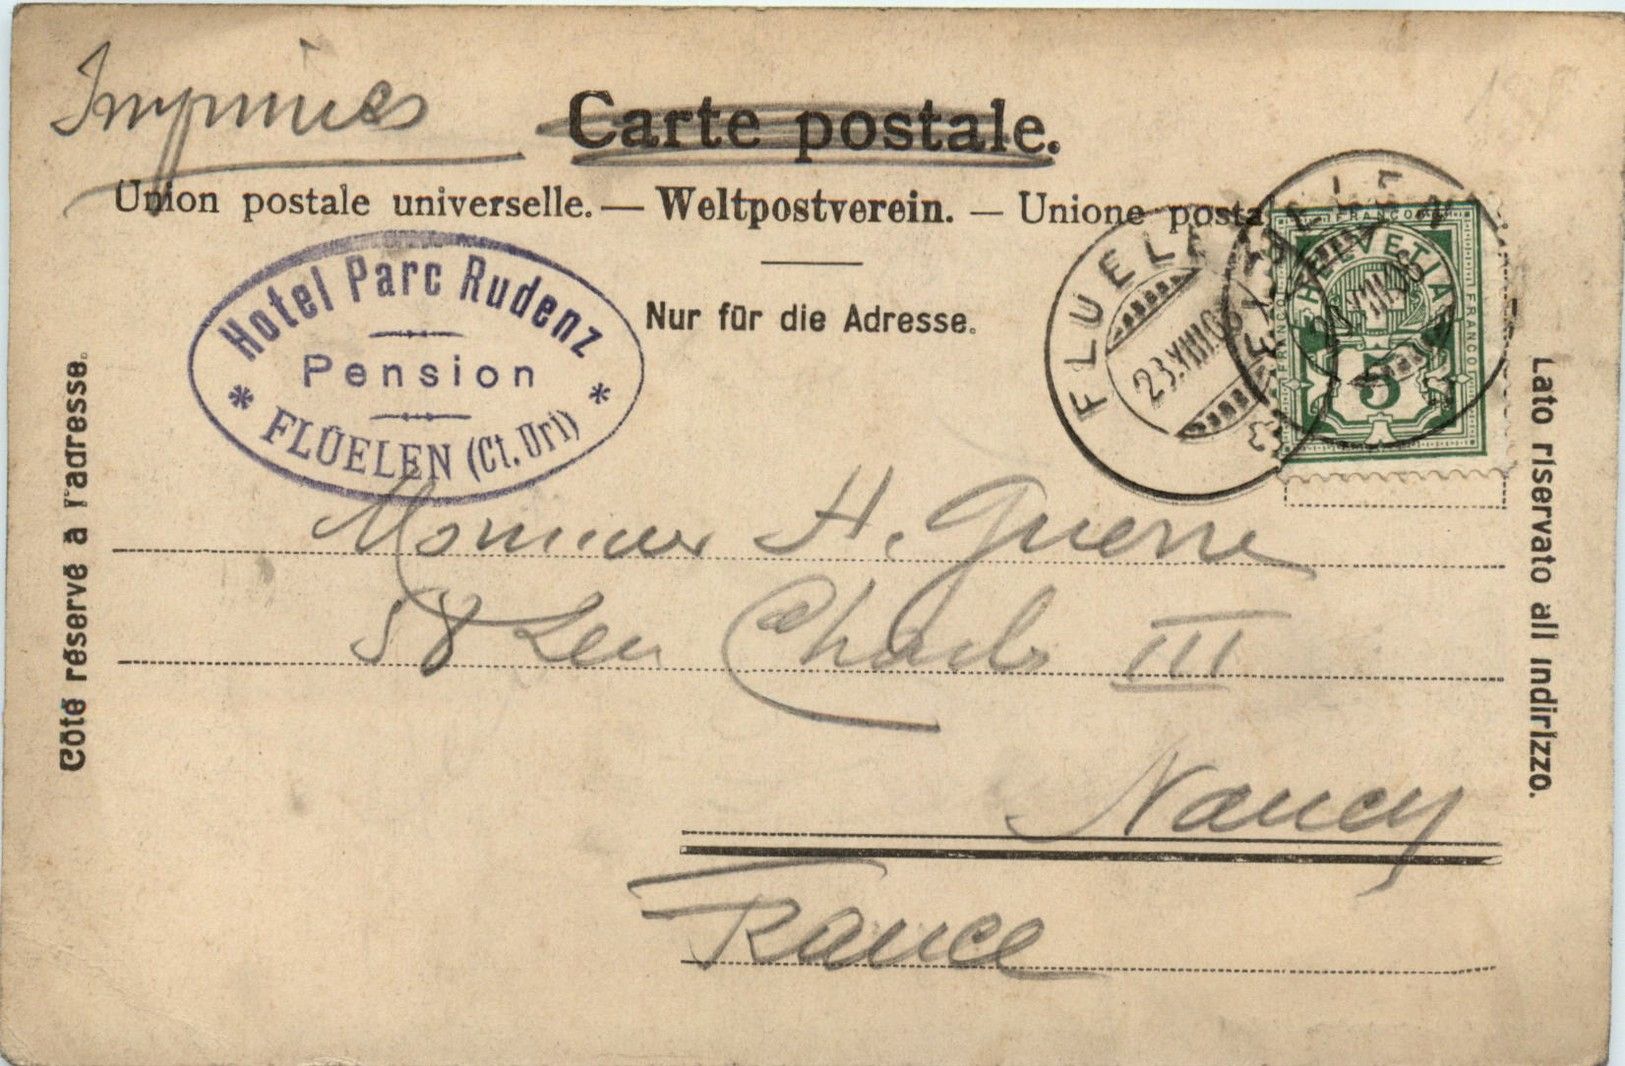 Imprimés
Carte postale.
Union postale universelle. — Weltpostverein. — Unione posta
Nur für die Adresse.
Hotel Parc Rudenz
Pension
* FLÜELEN (Ct. Uri) *
FLUELEN
23.VIII.06
FRANCO
HELVETIA
FRANCO
FRANCO
5
Côté réservé à l'adresse.
Lato riservato all indirizzo.
Monsieur H. Guerre
58 Charles III
Nancy
France